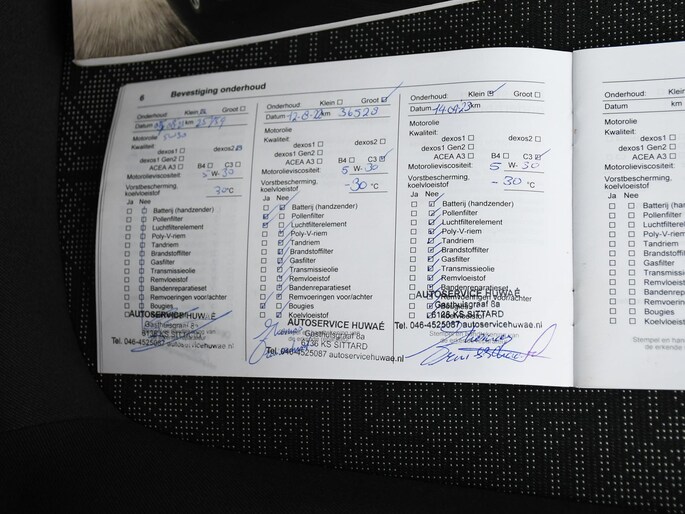 6 Bevestiging onderhoud
Onderhoud: Klein Groot
Datum km 25759
Motorolie 5W30
Kwaliteit:
dexos1 dexos2
dexos1 Gen2
ACEA A3 B4 C3
Motorolieviscositeit: 5 W- 30
Vorstbescherming,
koelvloeistof 30 °C
Ja Nee
Batterij (handzender)
Pollenfilter
Luchtfilterelement
Poly-V-riem
Tandriem
Brandstoffilter
Gasfilter
Transmissieolie
Remvloeistof
Bandenreparatieset
Remvoeringen voor/achter
Bougies
AUTOSERVICE HUWAÉ
Gasthuisgraaf 8a
6136 KS SITTARD
Tel. 046-4525087 autoservicehuwae.nl
Onderhoud: Klein Groot
Datum km 36529
Motorolie
Kwaliteit:
dexos1 dexos2
dexos1 Gen2
ACEA A3 B4 C3
Motorolieviscositeit: 5 W- 30
Vorstbescherming,
koelvloeistof -30 °C
Ja Nee
Batterij (handzender)
Pollenfilter
Luchtfilterelement
Poly-V-riem
Tandriem
Brandstoffilter
Gasfilter
Transmissieolie
Remvloeistof
Bandenreparatieset
Remvoeringen voor/achter
Bougies
Koelvloeistof
AUTOSERVICE HUWAÉ
Gasthuisgraaf 8a
6136 KS SITTARD
Tel. 046-4525087 autoservicehuwae.nl
Onderhoud: Klein Groot
Datum 14-09-23 km
Motorolie
Kwaliteit:
dexos1 dexos2
dexos1 Gen2
ACEA A3 B4 C3
Motorolieviscositeit: 5 W- 30
Vorstbescherming,
koelvloeistof -30 °C
Ja Nee
Batterij (handzender)
Pollenfilter
Luchtfilterelement
Poly-V-riem
Tandriem
Brandstoffilter
Gasfilter
Transmissieolie
Remvloeistof
Bandenreparatieset
Remvoeringen voor/achter
Bougies
Koelvloeistof
AUTOSERVICE HUWAÉ
Gasthuisgraaf 8a
6136 KS SITTARD
Tel. 046-4525087 autoservicehuwae.nl
Onderhoud: Klein
Datum
Motorolie
Kwaliteit:
dexos1
dexos1 Gen2
ACEA A3
Motorolieviscositeit:
Vorstbescherming,
koelvloeistof
Ja Nee
Batterij (h
Pollenfilter
Luchtfilter
Poly-V-rie
Tandriem
Brandstof
Gasfilter
Transmiss
Remvloei
Bandenre
Remvoeri
Bougies
Koelvloei
Stempel en han
de erkende